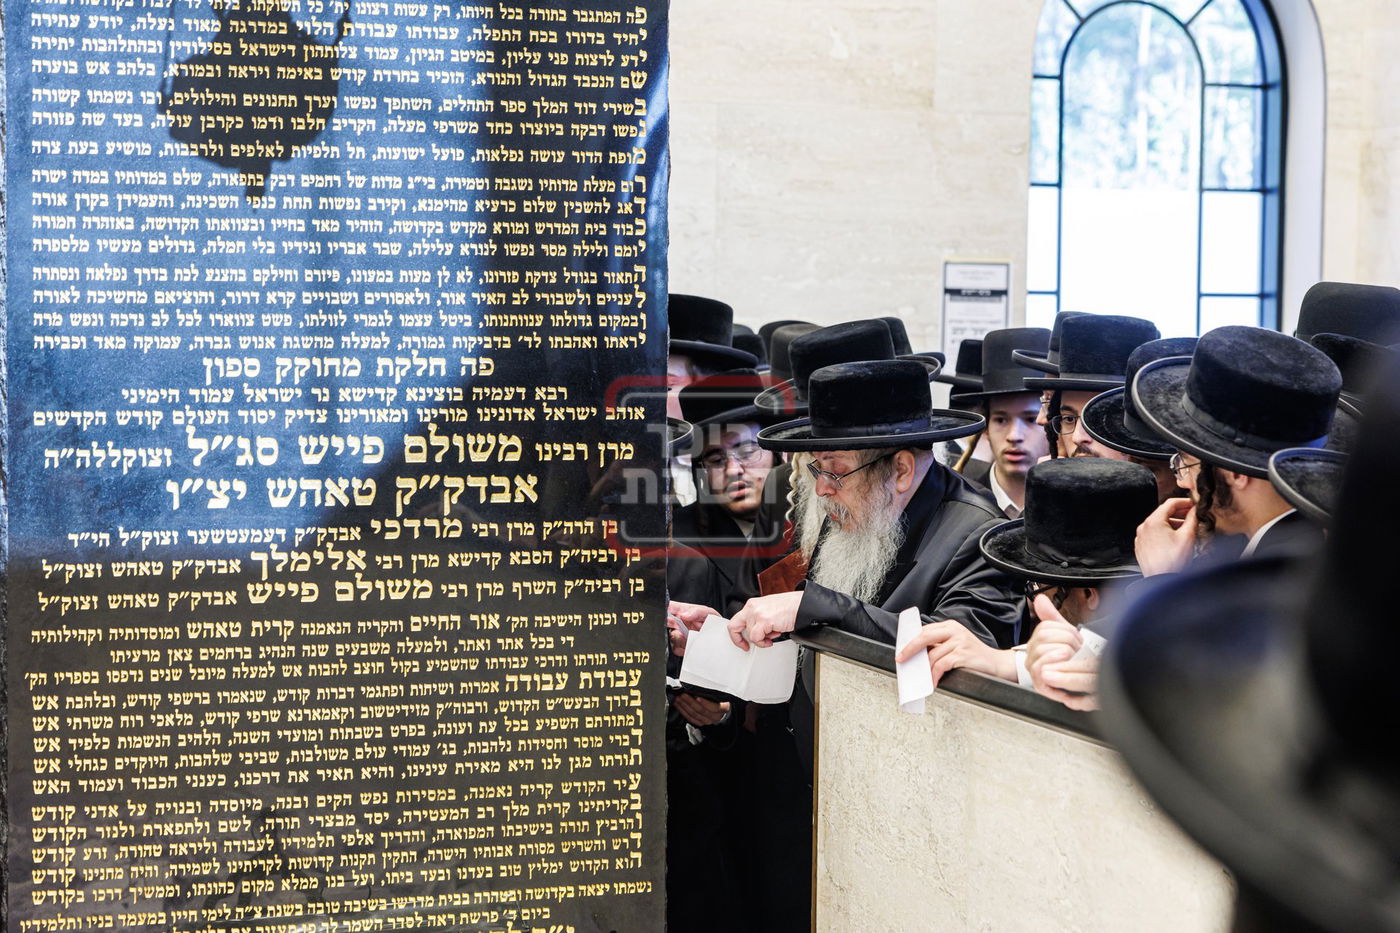 פה המתגבר בתורה בכל חיותו, רק עשות רצונו ית' כל תשוקתו, בלתי לד' לבדו
יחיד בדורו בכח התפלה, עבודתו עבודת הלוי במדרגה מאוד נעלה, יודע עתירה
ידע לרצות פני עליון, במיטב הגיון, עמוד צלותהון דישראל בסילודין ובהתלהבות יתירה
שם הנכבד הגדול והנורא, הזכיר בחרדת קודש באימה ויראה ובמורא, בלהב אש בוערה
בשירי דוד המלך ספר התהלים, השתפך נפשו וערך תחנונים והילולים, ובו נשמתו קשורה
נפשו דבקה ביוצרו כחד משרפי מעלה, הקריב חלבו ודמו כקרבן עולה, בעד שה פזורה
מופת הדור עושה נפלאות, פועל ישועות, תל תלפיות לאלפים ולרבבות, מושיע בעת צרה
רום מעלת מדותיו נשגבה וטמירה, בי"ג מדות של רחמים דבק בתפארה, שלם במדותיו במדה ישרה
דאג להשכין שלום כרעיא מהימנא, וקירב נפשות תחת כנפי השכינה, והעמידן בקרן אורה
כבוד בית המדרש ומורא מקדש בקדושה, הזהיר מאד בחייו ובצוואתו הקדושה, באזהרה חמורה
יומם ולילה מסר נפשו לנורא עלילה, שבר אבריו וגידיו בלי חמלה, גדולים מעשיו מלספרה
התאזר בגודל צדקת פזרונו, לא לן מעות במעונו, פיזרם וחילקם בהצנע לכת בדרך נפלאה ונסתרה
לעניים ולשבורי לב האיר אור, ולאסורים ושבויים קרא דרור, והוציאם מחשיכה לאורה
ובמקום גדולתו ענוותנותו, ביטל עצמו לגמרי לזולתו, פשט צווארו לכל לב נדכה ונפש מרה
יראתו ואהבתו לד' בדביקות גמורה, למעלה מהשגת אנוש גברה, עמוקה מאד וכבירה
פה חלקת מחוקק ספון
רבא דעמיה בוצינא קדישא נר ישראל עמוד הימיני
אוהב ישראל אדונינו מורינו ומאורינו צדיק יסוד העולם קודש הקדשים
מרן רבינו משולם פייש סג"ל זצוקללה"ה
אבדק"ק טאהש יצ"ו
בן הרה"ק מרן רבי מרדכי אבדק"ק דעמעטשער זצוק"ל הי"ד
בן רביה"ק הסבא קדישא מרן רבי אלימלך אבדק"ק טאהש זצוק"ל
בן רביה"ק השרף מרן רבי משולם פייש אבדק"ק טאהש זצוק"ל
יסד וכונן הישיבה הק' אור החיים והקריה הנאמנה קרית טאהש ומוסדותיה וקהילותיה
די בכל אתר ואתר, ולמעלה משבעים שנה הנהיג ברחמים צאן מרעיתו
מדברי תורתו ודרכי עבודתו שהשמיע בקול חוצב להבות אש למעלה מיובל שנים נדפסו בספריו הק'
עבודת עבודה אמרות ושיחות ופתגמי דברות קודש, שנאמרו ברשפי קודש, ובלהבת אש
בדרך הבעש"ט הקדוש, ורבוה"ק מזידיטשוב וקאמארנא שרפי קודש, מלאכי רוח משרתי אש
ומתורתם השפיע בכל עת ועונה, בפרט בשבתות ומועדי השנה, הלהיב הנשמות כלפיד אש
דברי מוסר וחסידות נלהבות, בג' עמודי עולם משולבות, שביבי שלהבות, היוקדים כגחלי אש
תורתו מגן לנו היא מאירת עינינו, והיא תאיר את דרכנו, כענני הכבוד ועמוד האש
עיר הקודש קריה נאמנה, במסירות נפש הקים ובנה, מיוסדה ובנויה על אדני קודש
בקריתינו קרית מלך רב המעטירה, יסד מבצרי תורה, לשם ולתפארת ולנזר הקודש
והרביץ תורה בישיבתו המפוארה, והדריך אלפי תלמידיו לעבודה וליראה טהורה, זרע קודש
דרש והשריש מסורת אבותיו הישרה, התקין תקנות קדושות לקריתינו לשמירה, והיה מחנינו קודש
הוא הקדוש ימליץ טוב בעדנו ובעד ביתו, ועל בנו ממלא מקום כהונתו, וממשיך דרכו בקודש
נשמתו יצאה בקדושה ובטהרה בבית מדרשו בשיבה טובה בשנת צ"ה לימי חייו במעמד בניו ותלמידיו
ביום ב' פרשת ראה לסדר השמר לך פן